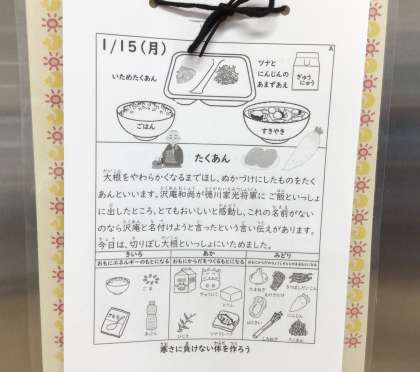 1/15(月)
A
いためたくあん
ツナと
にんじんの
あまずあえ
ぎゅう
にゅう
ごはん
すきやき
たくあん
大根をやわらかくなるまでほし、ぬかづけにしたものをたく
あんといいます。沢庵和尚が徳川家光将軍に ご飯といっしょ
に出したところ、とてもおいしいと感動し、これの名前がない
のなら沢庵と名付けようと言ったという言い伝えがあります。
今日は、切りぼし大根といっしょにいためました。
きいろ
あか
みどり
おもにエネルギーのもとになる
おもにからだをつくるもとになる
ごま
ぎゅうにく
とうふ
ひじき
たまねぎ
はくさい
にんじん
たくあん
寒さに負けない体を作ろう